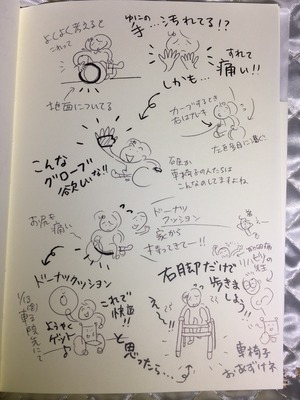 よくよく考えると
これって
地面についてる
ゆにの
手…汚れてる!?
すれて
痛い!!
しかも…
カーブするとき
右はブレーキ
左を多目に漕ぐ
こんな
グローブ
欲しいな!!
車椅子の人たちは
こんなのしてますよね
お尻も
痛い
ドーナツ
クッション
家から
持ってきてー!!
えー
リハビリの
先生
ドーナツクッション
これで
快適!!
ようやく
ゲット
と思ったら…
右脚だけで
歩きま
しょう!!
えー!!
車椅子
おあずけネ